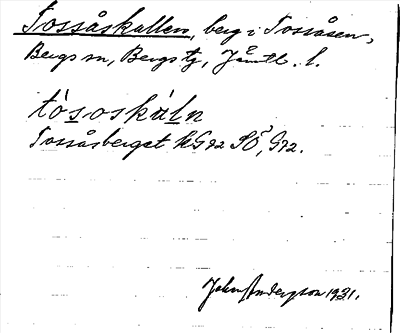 Tossåskallen, berg i Tossåsen,
Bergs sn, Bergs tg, Jämtl. l.
tòsoskáln
Tossåsberget KG92 SÖ, G92.
John Anderzon 1931.